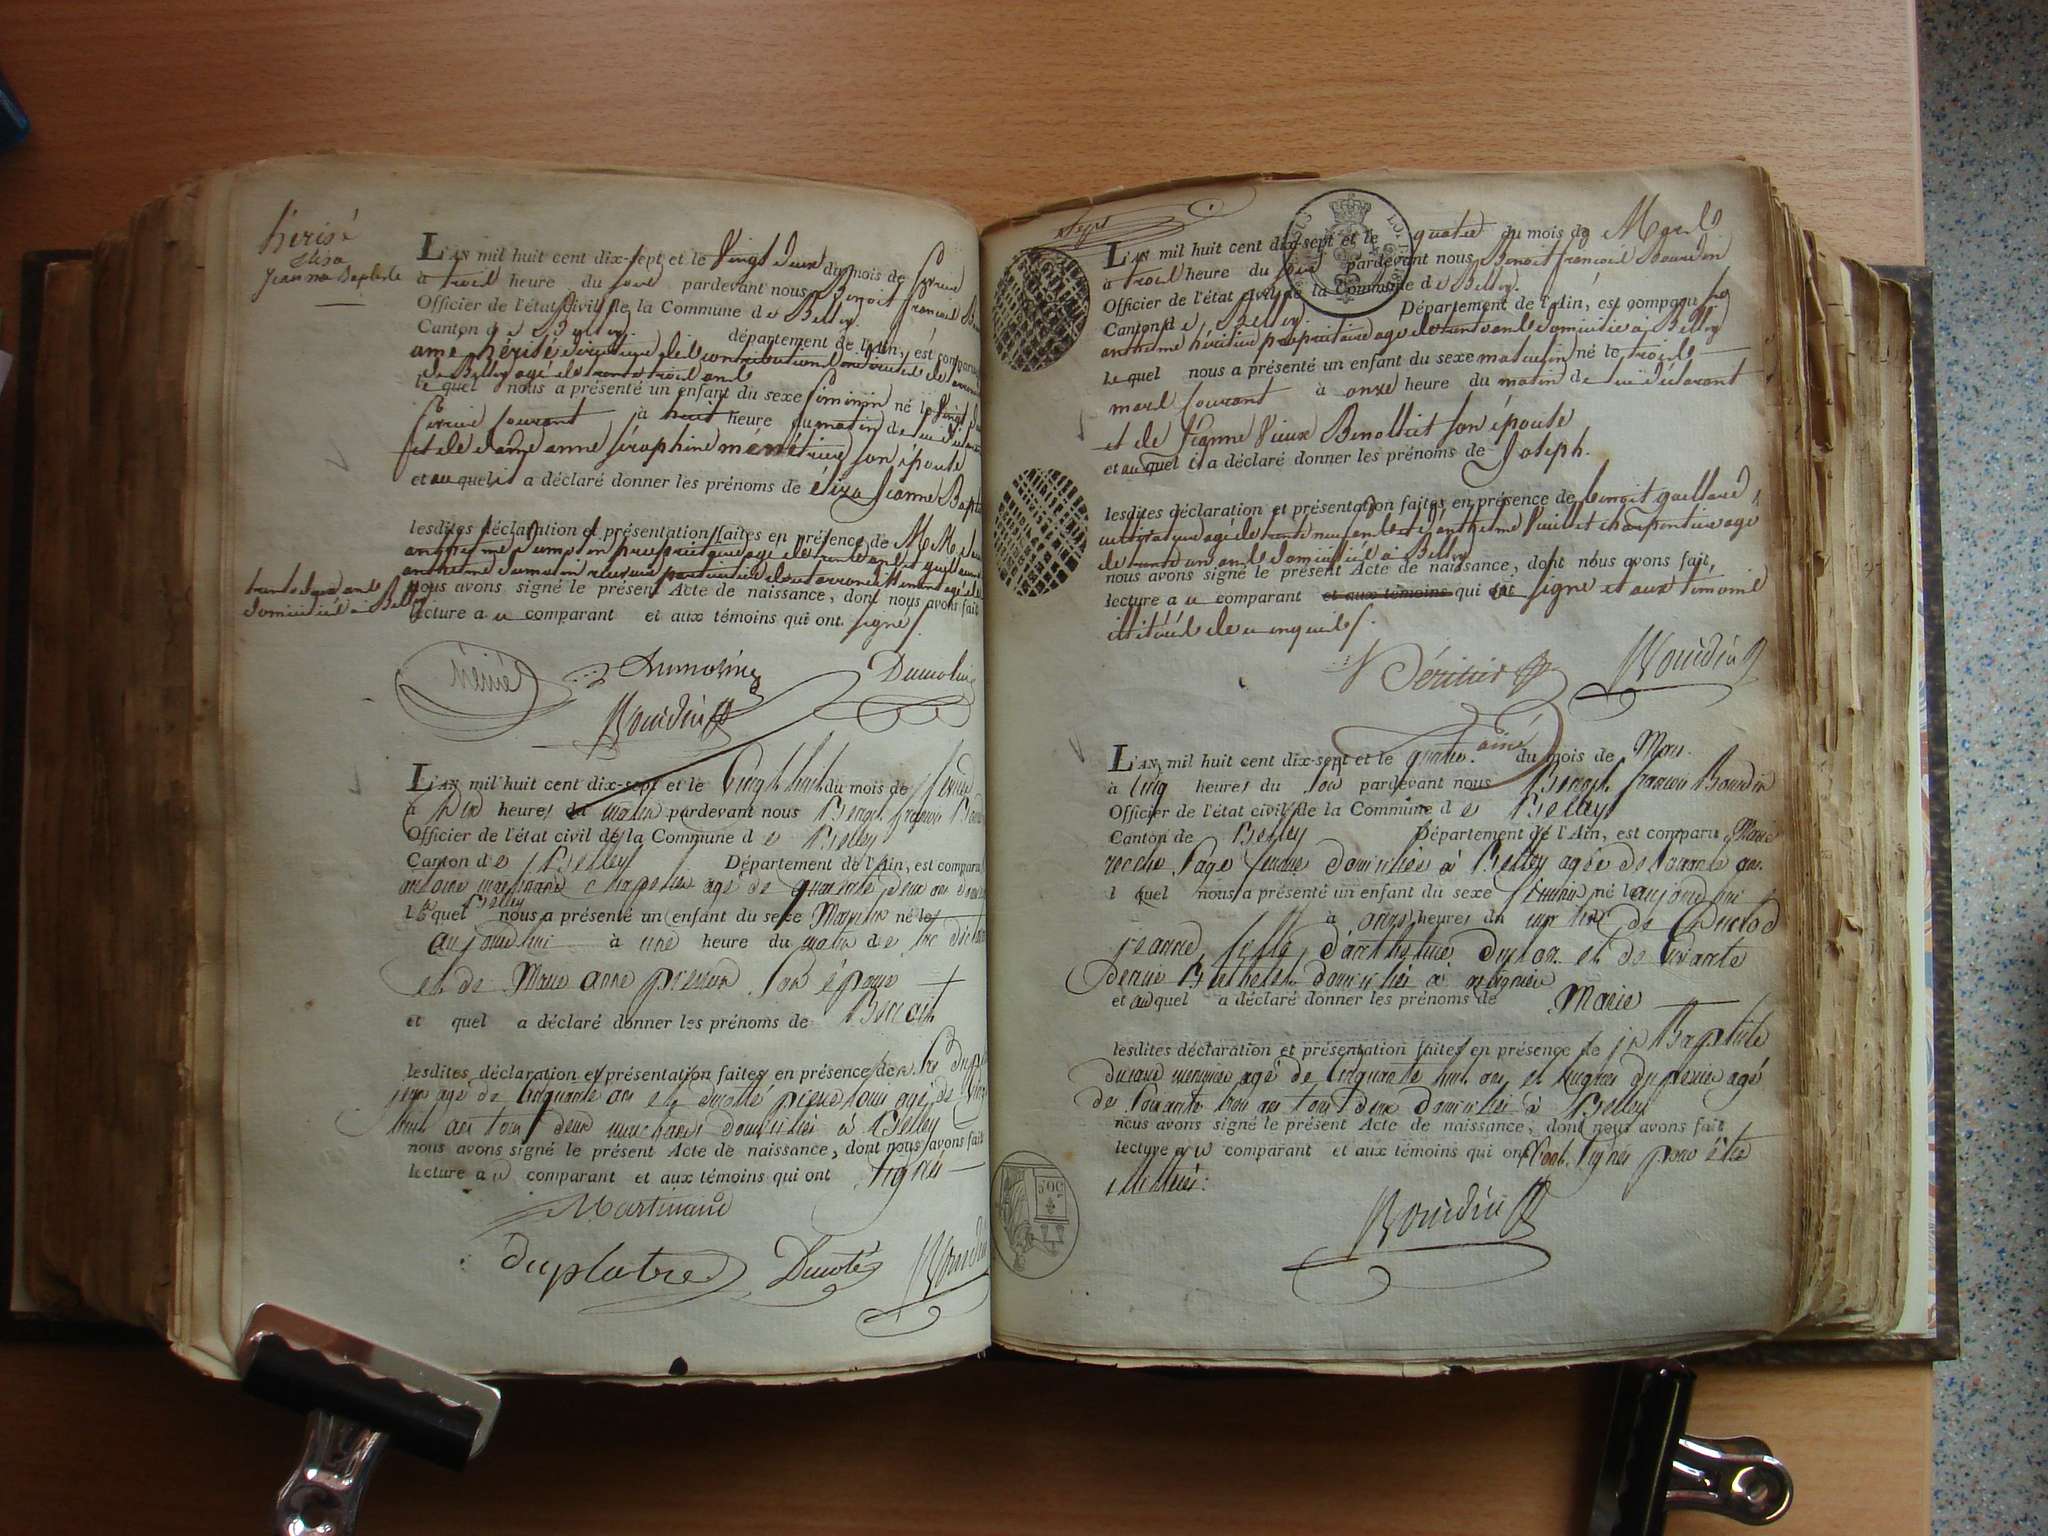 hérisé
élisa
Jeanne Baptiste
L'AN mil huit cent dix-sept et le Vingt deux du mois de février
à trois heure du soir pardevant nous Benoit françois
Officier de l'état civil de la Commune de Belley.
Canton de Belley. département de l'Ain, est comparu
ame hérisé directeur des contributions indirectes de
de Belley agé de trente trois ans
le quel nous a présenté un enfant du sexe féminin né le Vingt
février courant à huit heure du matin de lui déclarant
et de dame anne séraphine ménétrier son épouse
et au quel il a déclaré donner les prénoms de éliza Jeanne Bapt
lesdites déclaration et présentation faites en présence de MM.
anthelme Dumolin propriétaire agé de trente ans et
anthelme Dumolin receveur particulier de cet arrondissement agé de
trente deux ans
domiciliés à Belley
nous avons signé le présent Acte de naissance, dont nous avons fait
lecture au comparant et aux témoins qui ont signé
hérisé Dumolin Dumolin
Bourdin
L'AN mil huit cent dix-sept et le Vingt huit du mois de février
à dix heures du matin pardevant nous Benoit françois
Officier de l'état civil de la Commune de Belley
Canton de Belley Département de l'Ain, est comparu
antoine martinand chapelier agé de quarante deux ans
Belley
le quel nous a présenté un enfant du sexe Masculin né le
aujourdhui à une heure du matin de lui
et de Marie anne son épouse
et quel a déclaré donner les prénoms de Benoit
lesdites déclaration et présentation faites en présence de
agé de cinquante ans et ducoté pierre louis agé de
huit ans tous deux domiciliés à Belley
nous avons signé le présent Acte de naissance, dont nous avons fait
lecture au comparant et aux témoins qui ont signés
Martinand
Duplatre Ducoté Bourdin
sept
L'AN mil huit cent dix-sept et le quatre du mois de Mars
à trois heure du soir pardevant nous Benoit françois Bourdin
Officier de l'état civil de la Commune de Belley.
Canton de Belley. Département de l'Ain, est comparu
anthelme héritier propriétaire agé de trente ans domicilié à Belley
le quel nous a présenté un enfant du sexe masculin né le trois de
mars courant à onze heure du matin de lui déclarant
et de Jeanne Vieux Benottiet son épouse
et au quel il a déclaré donner les prénoms de Joseph.
lesdites déclaration et présentation faites en présence de benoit gaillard
cultivateur agé de trente neuf ans et d'anthelme Vuillet charpentier agé
de trente un ans domiciliés à Belley
nous avons signé le présent Acte de naissance, dont nous avons fait,
lecture au comparant et aux témoins qui a signé et aux témoins
illitérés de ce enquis.
héritier Bourdin
ainé
L'AN mil huit cent dix-sept et le quatre. du mois de Mars
à cinq heures du soir pardevant nous Benoit françois Bourdin
Officier de l'état civil de la Commune de Belley
Canton de Belley Département de l'Ain, est comparu Marie
page domiciliée à Belley agée de soixante ans
l quel nous a présenté un enfant du sexe féminin né aujourdhui
à onze heures du matin de
jeanne, fille d'anthelme duclos et de vivante
domiciliés à
et au quel a déclaré donner les prénoms de Marie
lesdites déclaration et présentation faites en présence de jn Baptiste
menuisier agé de cinquante huit ans et hugues agé
de soixante trois ans tous deux domiciliés à Belley
nous avons signé le présent Acte de naissance, dont nous avons fait
lecture au comparant et aux témoins qui ont signés pour être
illitérés.
Bourdin
50C